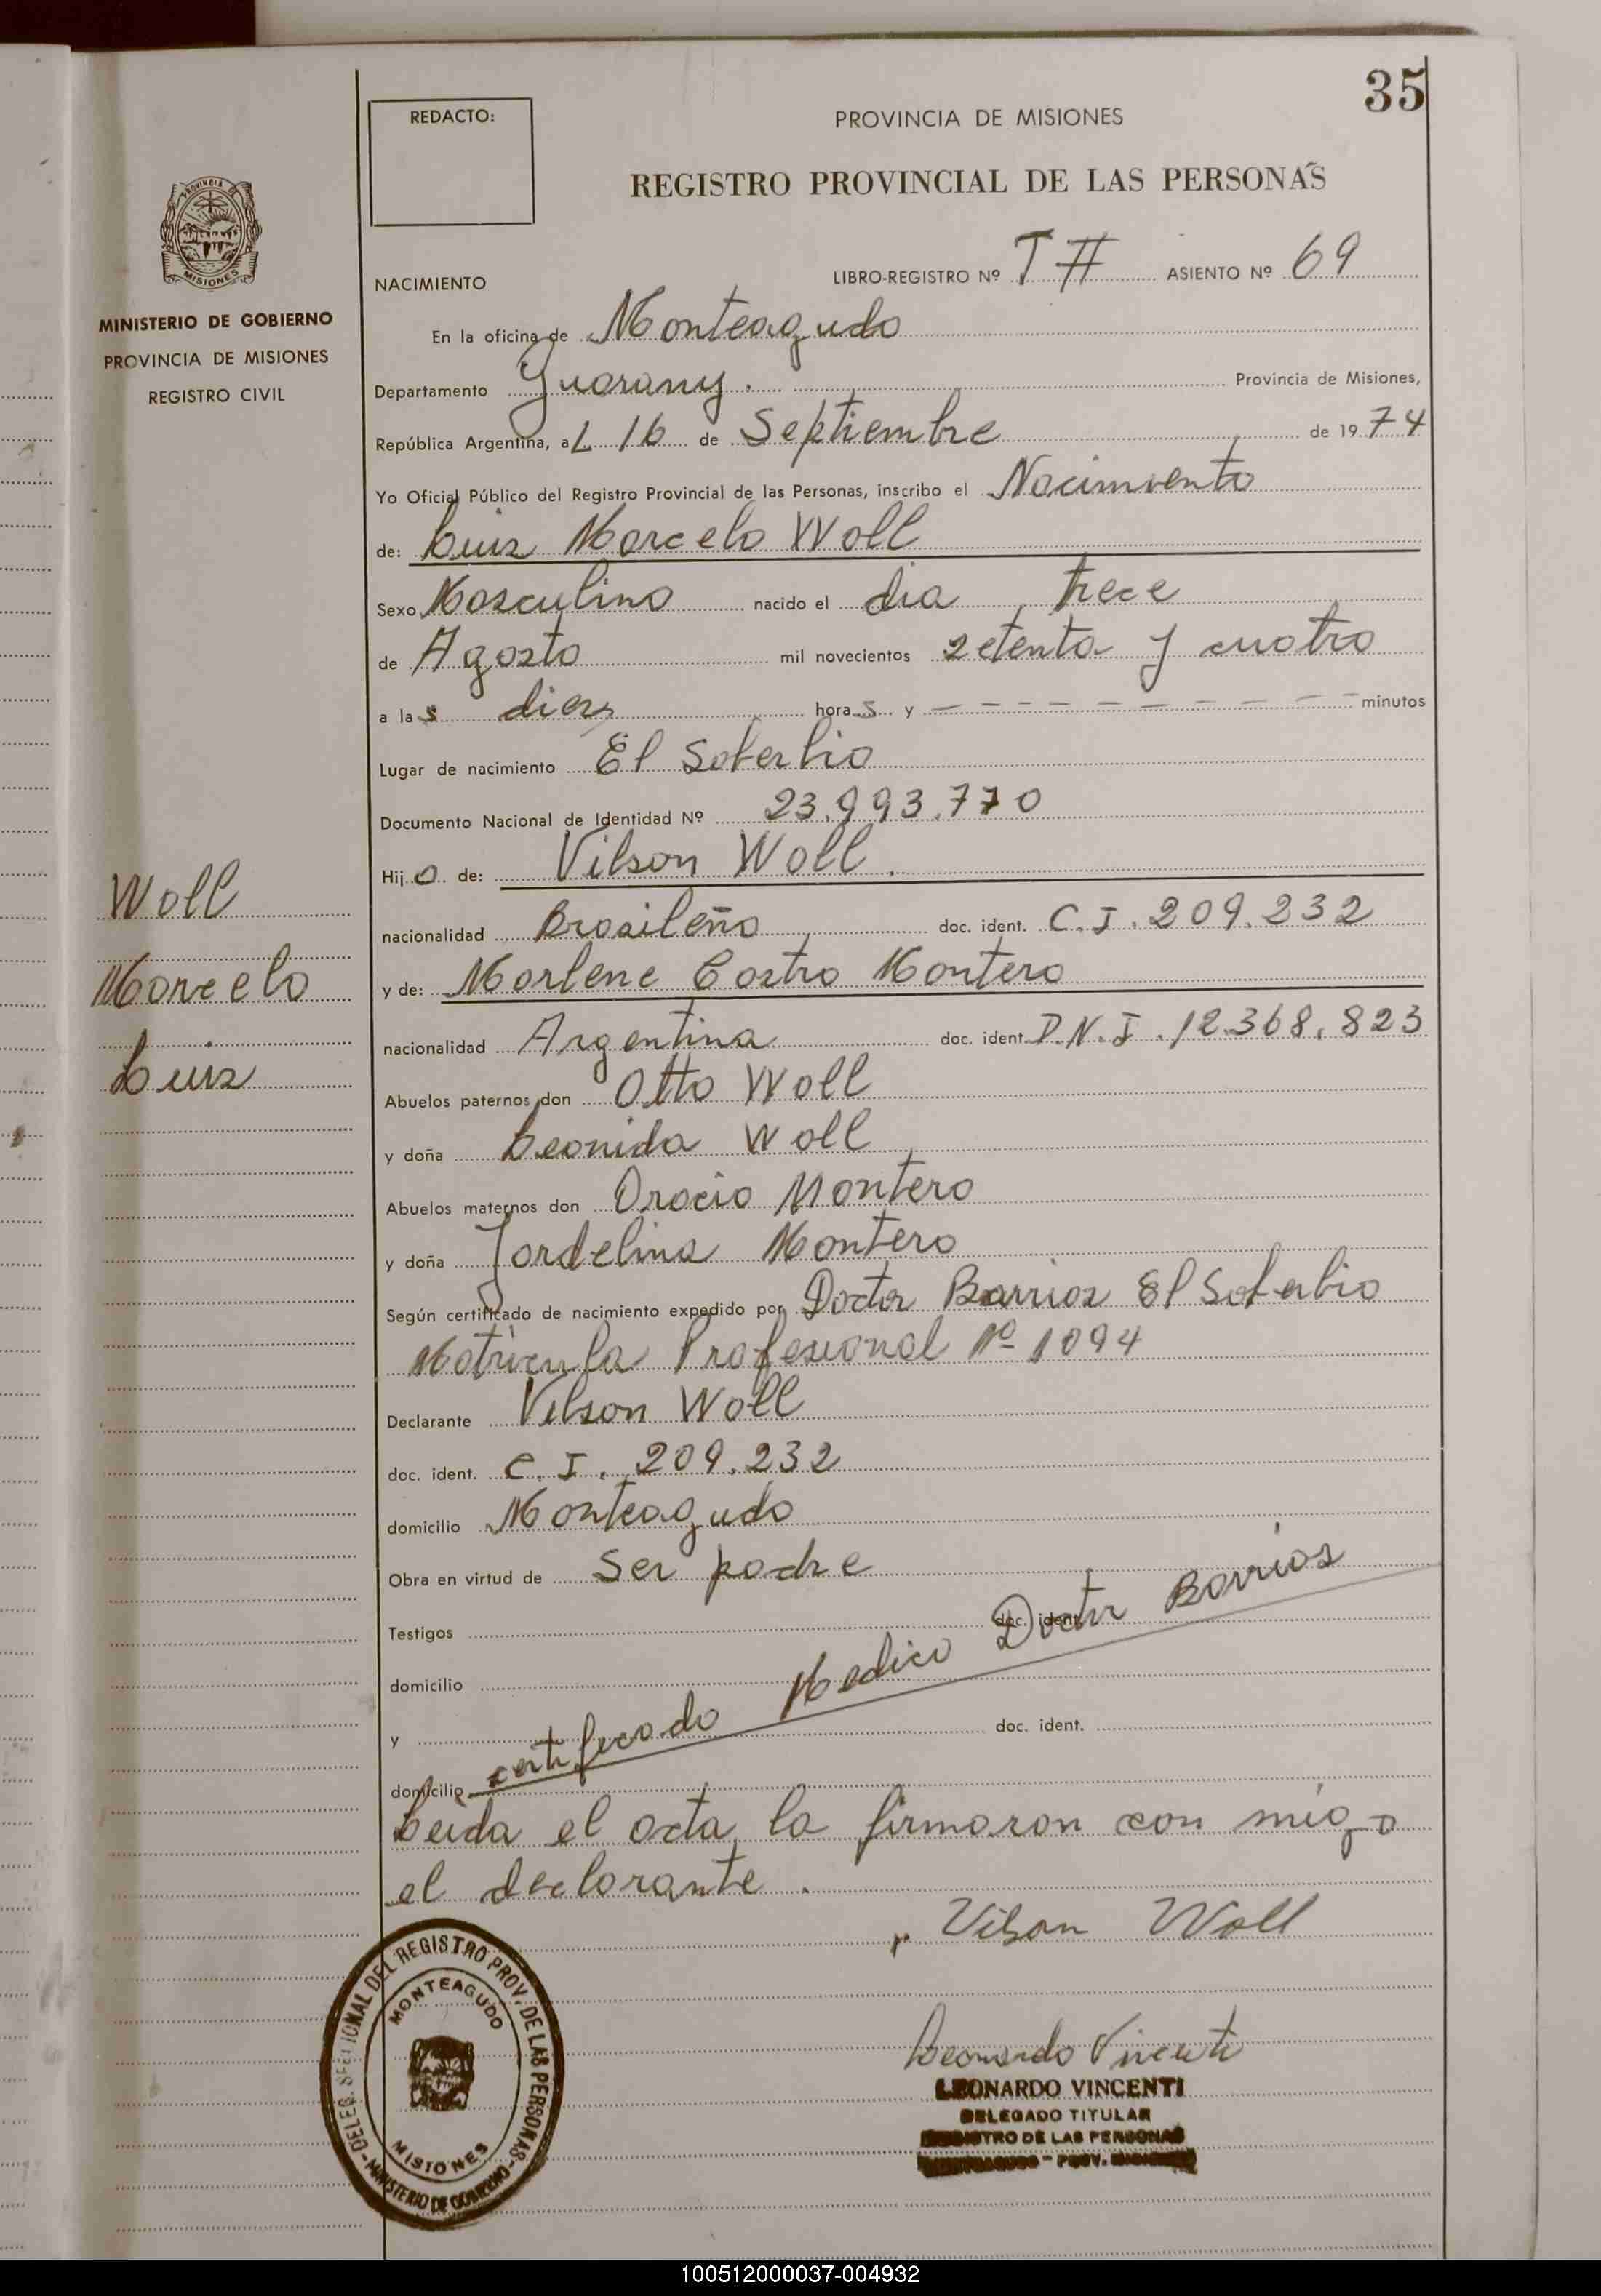 35
REDACTO:
PROVINCIA DE MISIONES
REGISTRO PROVINCIAL DE LAS PERSONAS
PROVINCIA DE
MISIONES
MINISTERIO DE GOBIERNO
PROVINCIA DE MISIONES
REGISTRO CIVIL
NACIMIENTO LIBRO-REGISTRO Nº T II ASIENTO Nº 69
En la oficina de Monteagudo
Departamento Guarany. Provincia de Misiones,
República Argentina, aL 16 de Septiembre de 1974
Yo Oficial Público del Registro Provincial de las Personas, inscribo el Nacimiento
de: Luis Marcelo Woll
Sexo Masculino nacido el dia trece
de Agosto mil novecientos setenta y cuatro
a las diez horas y — — — — — — — — — — minutos
Lugar de nacimiento El Soberbio
Documento Nacional de Identidad Nº 23.993.770
Hijo de: Vilson Woll.
nacionalidad Brasileño doc. ident. C.I. 209.232
y de: Marlene Castro Montero
nacionalidad Argentina doc. ident. D.N.I. 12.368.823
Abuelos paternos don Otto Woll
y doña Leonida Woll
Abuelos maternos don Oracio Montero
y doña Jordelina Montero
Según certificado de nacimiento expedido por Doctor Barrios El Soberbio
Matricula Profesional Nº 1094
Declarante Vilson Woll
doc. ident. C.I. 209.232
domicilio Monteagudo
Obra en virtud de Ser padre
Testigos doc. ident.
domicilio
y doc. ident.
domicilio
certificado Medico Doctor Barrios
Leida el acta la firmaron con migo
el declarante.
Vilson Woll
Woll
Marcelo
Luis
DELEG. SECCIONAL DEL REGISTRO PROV. DE LAS PERSONAS
MONTEAGUDO
MISIONES
MINISTERIO DE GOBIERNO
Leonardo Vincenti
LEONARDO VINCENTI
DELEGADO TITULAR
REGISTRO DE LAS PERSONAS
MONTEAGUDO - PROV. MISIONES
100512000037-004932